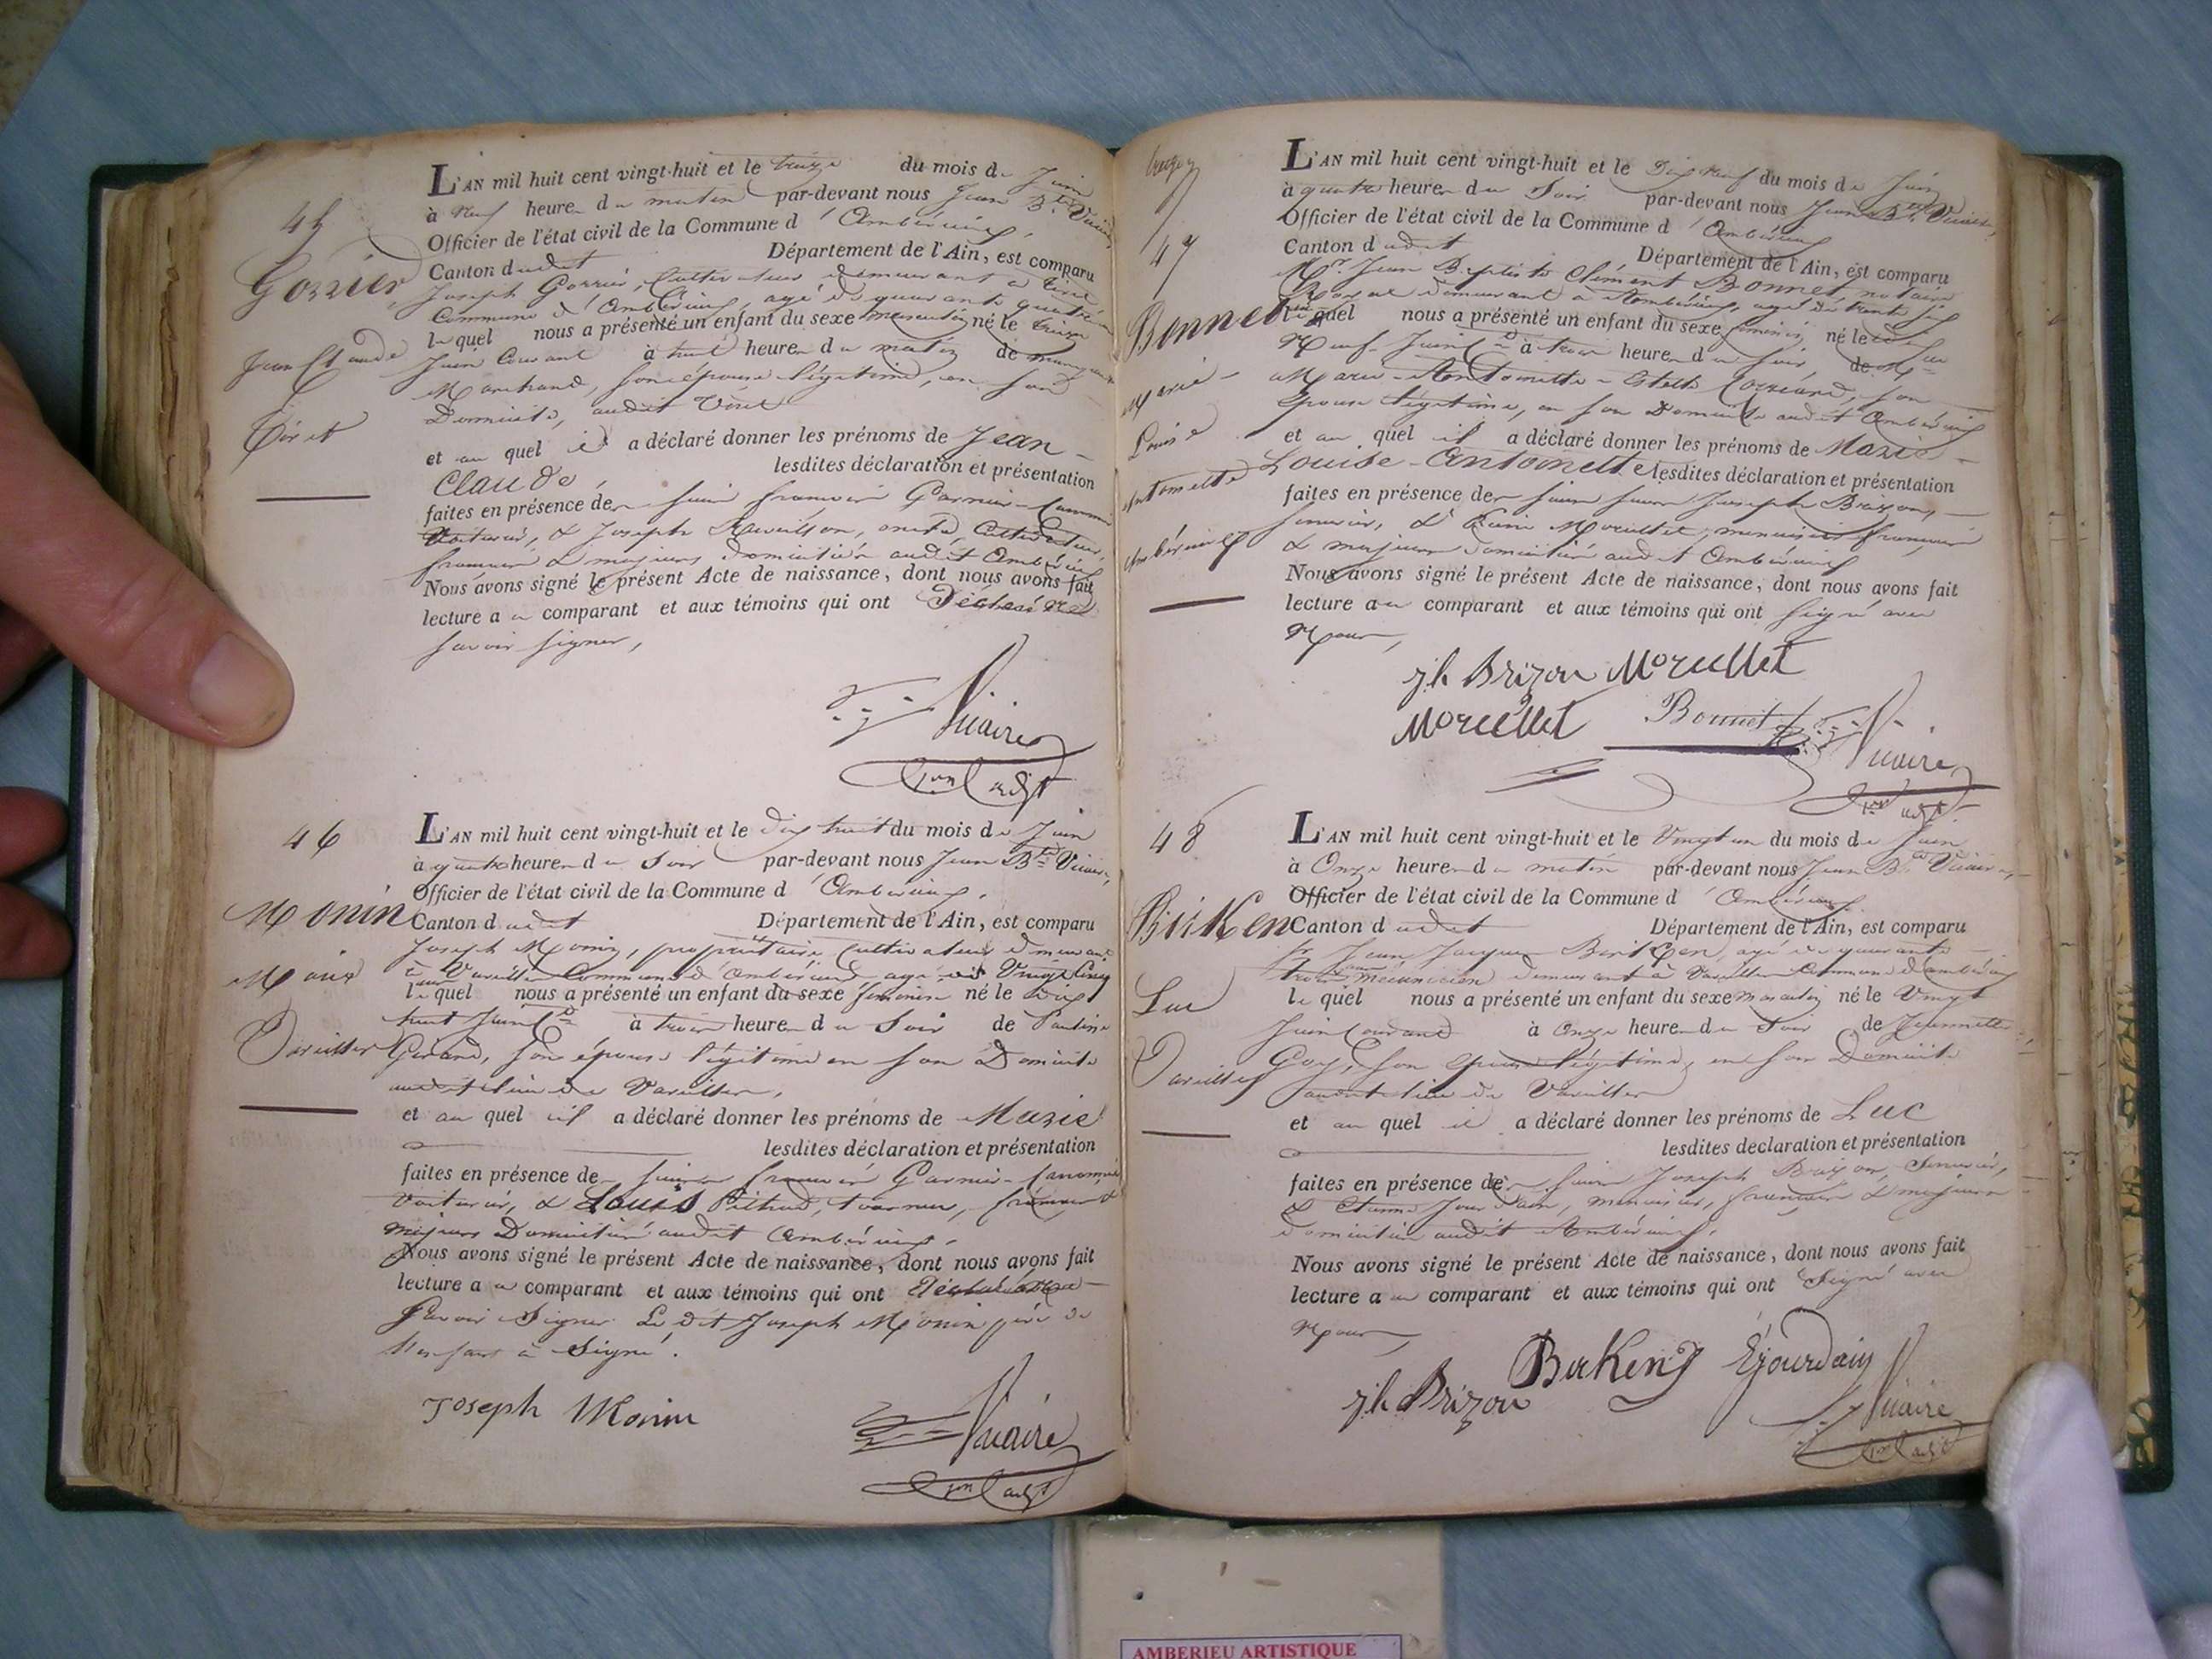 45
Gorrier
Jean Claude
Tiret
L'AN mil huit cent vingt-huit et le treize du mois de Juin
à Neuf heures du matin par-devant nous Jean Bte Vicaire
Officier de l'état civil de la Commune d'Ambérieux,
Canton dudit Département de l'Ain, est comparu
Joseph Gorrier, Cultivateur demeurant à Tiret
Commune d'Ambérieux, agé de quarante quatre
lequel nous a présenté un enfant du sexe masculin né le treize
Juin Courant à huit heures du matin de
Marchand, son épouse légitime, en son
Domicile, audit Tiret
et au quel il a déclaré donner les prénoms de Jean-
Claude, lesdites déclaration et présentation
faites en présence des sieurs françois Garnier-
Voiturier, & Joseph Ravillon, Cultivateur,
français & majeurs domiciliés audit Ambérieux
Nous avons signé le présent Acte de naissance, dont nous avons fait
lecture au comparant et aux témoins qui ont Déclaré ne
savoir signer,
Vicaire
46
Monin
Marie
Vareilles
L'AN mil huit cent vingt-huit et le dix huit du mois de Juin
à quatre heures du Soir par-devant nous Jean Bte Vicaire,
Officier de l'état civil de la Commune d'Ambérieux,
Canton dudit Département de l'Ain, est comparu
Joseph Monin, propriétaire Cultivateur demeurant
à Vareilles Commune d'Ambérieux agé de Vingt Cinq
lequel nous a présenté un enfant du sexe féminin né le dix
huit Juin à trois heures du Soir de
Girand, son épouse légitime en son Domicile
audit lieu de Vareilles,
et au quel il a déclaré donner les prénoms de Marie
lesdites déclaration et présentation
faites en présence des sieurs françois Garnier-
Voiturier, & Louis français &
majeurs Domiciliés audit Ambérieux,
Nous avons signé le présent Acte de naissance, dont nous avons fait
lecture au comparant et aux témoins qui ont Déclaré ne
Savoir Signer Le dit Joseph Monin père de
l'enfant à Signé.
Joseph Monin
Vicaire
47
Bonnet
Marie-
Louise
Antoinette
Ambérieux
L'AN mil huit cent vingt-huit et le Dix Neuf du mois de Juin
à quatre heures du Soir par-devant nous Jean Bte Vicaire,
Officier de l'état civil de la Commune d'Ambérieux
Canton dudit Département de l'Ain, est comparu
Mr Jean Baptiste Clément Bonnet notaire
Royal demeurant à Ambérieux, agé de trente six
lequel nous a présenté un enfant du sexe féminin né le dix
Neuf Juin à trois heures du soir de
Marie-Antoinette-Estelle son
épouse légitime, en son Domicile audit Ambérieux
et au quel il a déclaré donner les prénoms de Marie-
Louise-Antoinette lesdites déclaration et présentation
faites en présence des sieurs Joseph Brizon,
Serrurier, & Morellet, menuisier français
& majeurs domiciliés audit Ambérieux
Nous avons signé le présent Acte de naissance, dont nous avons fait
lecture au comparant et aux témoins qui ont signé avec
Nous,
jh Brizon Morellet
Morellet Bonnet Vicaire
48
Birken
Luc
Vareilles
L'AN mil huit cent vingt-huit et le Vingt un du mois de Juin
à Onze heures du matin par-devant nous Jean Bte Vicaire,
Officier de l'état civil de la Commune d'Ambérieux
Canton dudit Département de l'Ain, est comparu
sr Jean Jacques Birken, agé de quarante
trois mécanicien demeurant à Vareilles Commune d'Ambérieux
lequel nous a présenté un enfant du sexe masculin né le Vingt
Juin Courant à Onze heures du Soir de Jeannette
Goy, son épouse légitime, en son Domicile
audit lieu de Vareilles
et au quel il a déclaré donner les prénoms de Luc
lesdites declaration et présentation
faites en présence des sieurs Joseph Brizon, Serrurier,
& Etienne Jourdain, menuisier, français & majeurs
domiciliés audit Ambérieux,
Nous avons signé le présent Acte de naissance, dont nous avons fait
lecture au comparant et aux témoins qui ont Signé avec
Nous,
Birken Ejourdain
jh Brizon Vicaire
AMBERIEU ARTISTIQUE